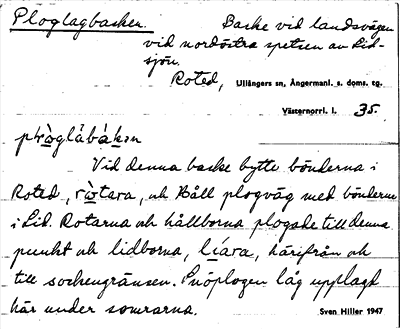 Ploglagbacken. Backe vid landsvägen
vid nordöstra spetsen av Lid-
sjön.
Roted, Ullångers sn, Ångermanl. s. doms. tg.
Västernorrl. l. 35.
Vid denna backe bytte bönderna i
Roted, och Håll plogväg med bönderna
i Lid. Rotarna och hållborna plogade till denna
punkt och lidborna, härifrån och
till sockengränsen. Snöplogen låg upplagd
här under somrarna. Sven Hiller 1947